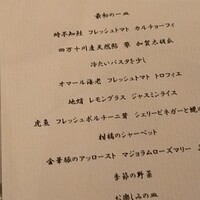 最初の一皿
時不知鮭 フレッシュトマト カルチョーフィ
四万十川産天然鮎 蓼 加賀太胡瓜
冷たいパスタを少し
オマール海老 フレッシュトマト トロフィエ
地蛸 レモングラス ジャスミンライス
虎魚 フレッシュポルチーニ茸 シェリービネガーと焼
柑橘のシャーベット
金華豚のアッロースト マジョラムローズマリー
季節の野菜
お楽しみの皿